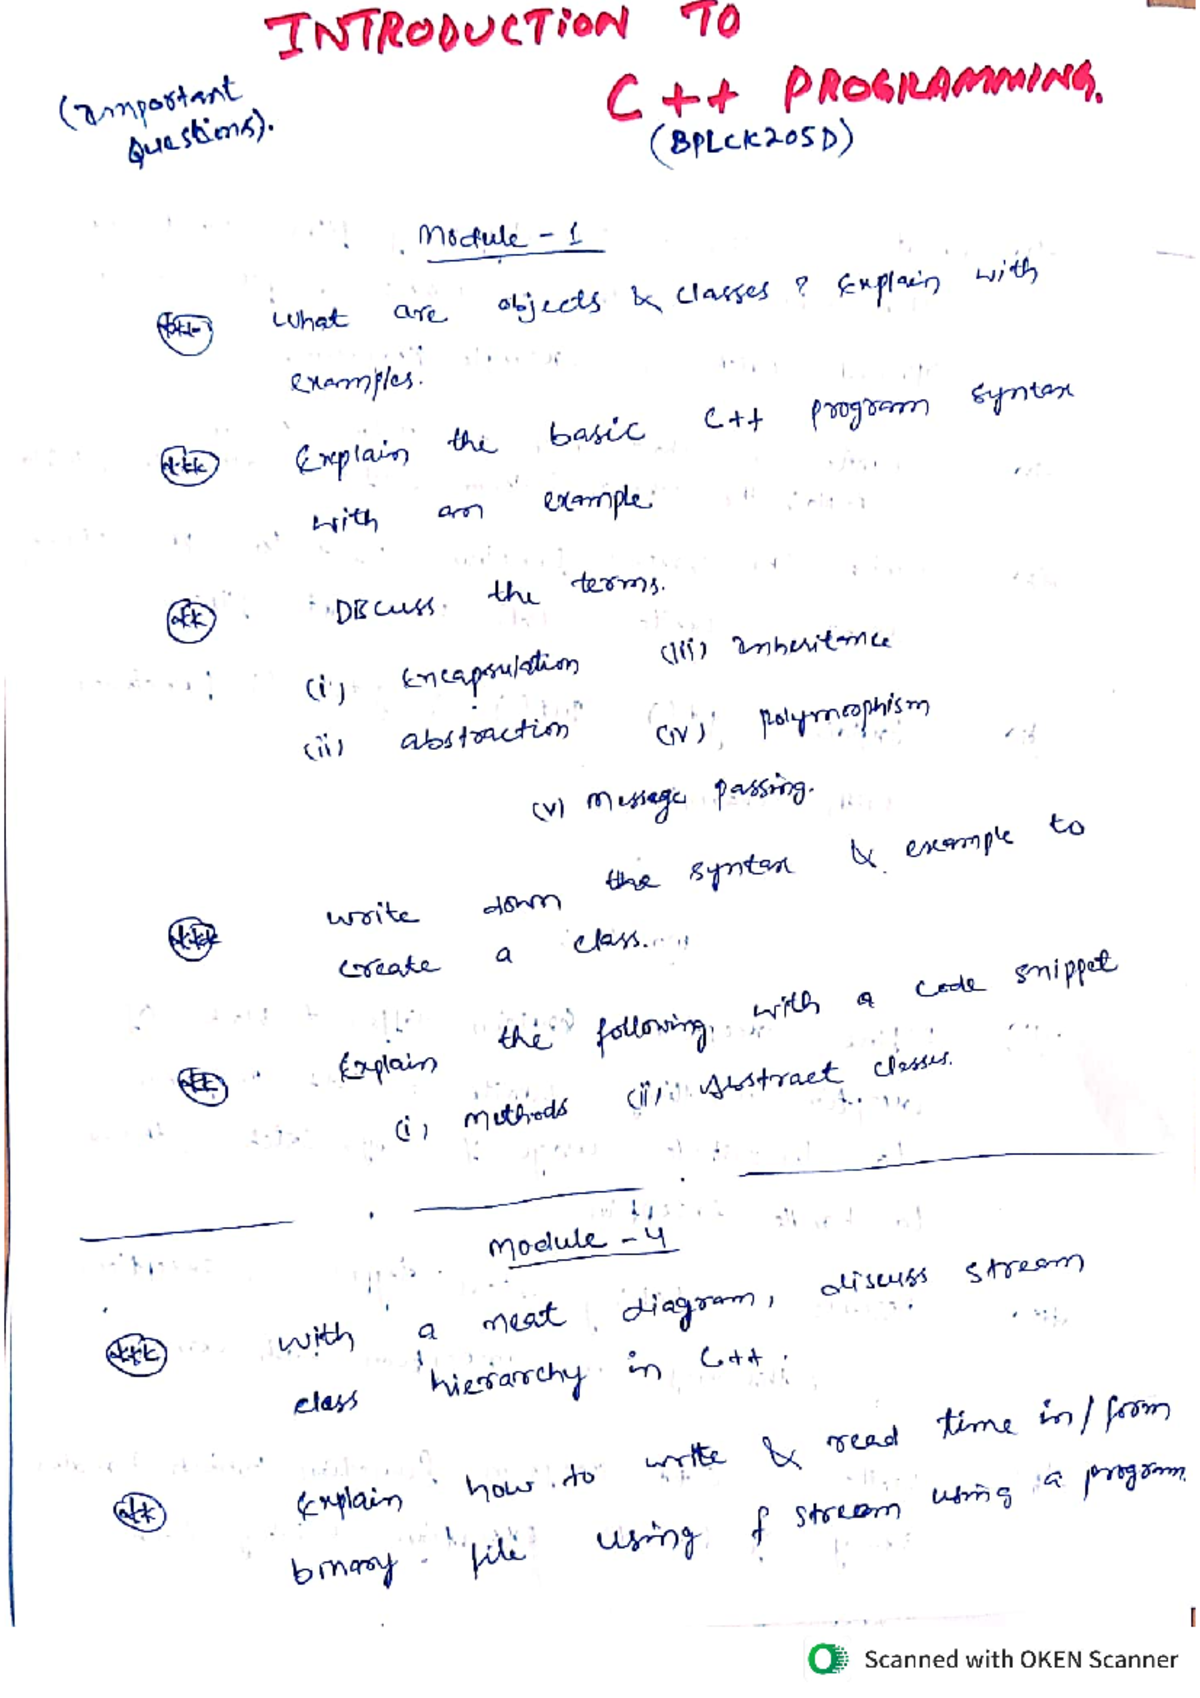 INTRODUCTION TO
C++ PROGRAMMING.
(Important
Questions).
(BPLCK205D)
Module - 1
*** What are objects & classes? Explain with
examples.
*** Explain the basic C++ program syntax
with an example.
** Discuss the terms.
(i) Encapsulation (iii) Inheritance
(ii) abstraction (iv) polymorphism
(v) Message passing.
*** write down the syntax & example to
create a class.
** Explain the following with a code snippet
(i) Methods (ii) Abstract classes.
Module - 4
*** with a neat diagram, discuss stream
class hierarchy in C++.
** Explain how to write & read time in/form
binary file using f stream using a program.
Scanned with OKEN Scanner